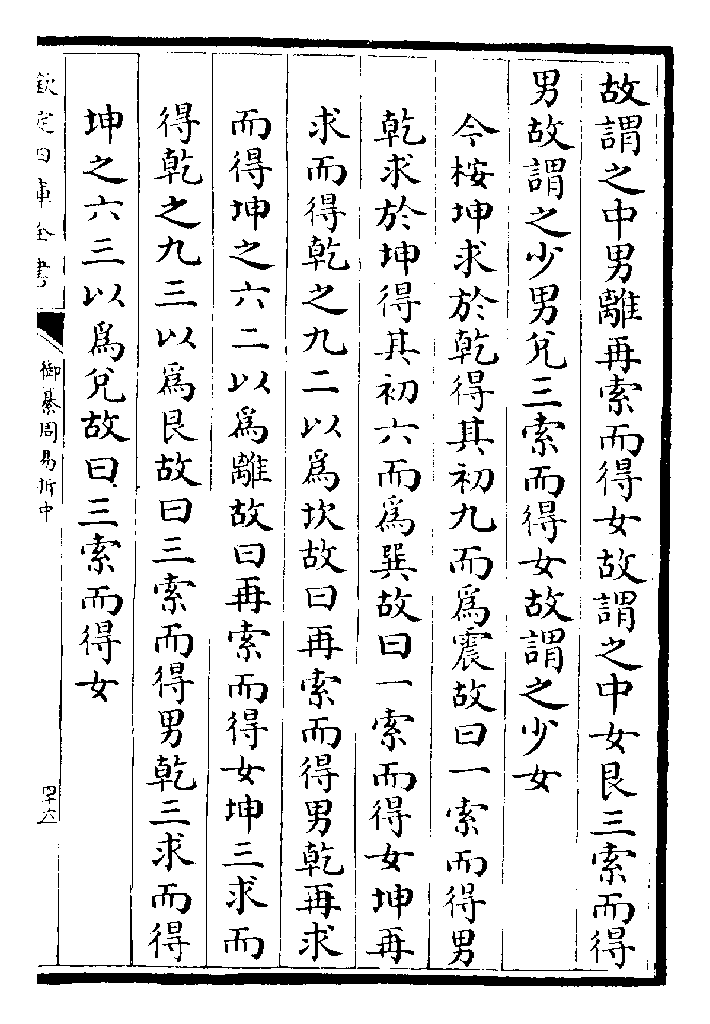 故謂之中男離再索而得女故謂之中女艮三索而得
男故謂之少男兌三索而得女故謂之少女
今桉坤求於乾得其初九而為震故曰一索而得男
乾求於坤得其初六而為巽故曰一索而得女坤再
求而得乾之九二以為坎故曰再索而得男乾再求
而得坤之六二以為離故曰再索而得女坤三求而
得乾之九三以為艮故曰三索而得男乾三求而得
坤之六三以為兌故曰三索而得女
欽定四庫全書
御纂周易折中
四十六